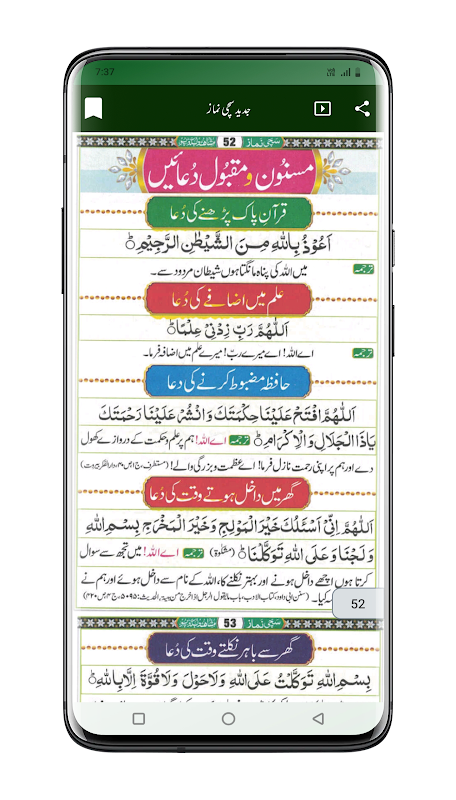 7:37
جدید سچی نماز
سچی نماز 52
مسنون و مقبول دعائیں
قرآنِ پاک پڑھنے کی دُعا
اَعُوْذُ بِاللّٰهِ مِنَ الشَّيْطٰنِ الرَّجِيْمِ ؕ
ترجمہ میں اللہ کی پناہ مانگتا ہوں شیطان مردود سے۔
علم میں اضافے کی دُعا
اَللّٰهُمَّ رَبِّ زِدْنِيْ عِلْمًا ؕ
ترجمہ اے اللہ! اے میرے ربّ! میرے علم میں اضافہ فرما۔
حافظہ مضبوط کرنے کی دعا
اَللّٰهُمَّ افْتَحْ عَلَيْنَا حِكْمَتَكَ وَانْشُرْ عَلَيْنَا رَحْمَتَكَ
يَاذَا الْجَلَالِ وَالْاِكْرَامِ ؕ ترجمہ اے اللہ! ہم پر علم و حکمت کے دروازے کھول
دے اور ہم پر اپنی رحمت نازل فرما! اے عظمت و بزرگی والے!
گھر میں داخل ہوتے وقت کی دُعا
اَللّٰهُمَّ اِنِّيْ اَسْئَلُكَ خَيْرَ الْمَوْلِجِ وَخَيْرَ الْمَخْرَجِ بِسْمِ اللهِ
وَلَجْنَا وَعَلَى اللهِ تَوَكَّلْنَا ؕ (مشکوٰۃ) ترجمہ اے اللہ! میں تجھ سے سوال
کرتا ہوں اچھے داخل ہونے اور بہتر نکلنے کا، اللہ کے نام سے داخل ہوئے اور ہم نے
کیا۔
52
سچی نماز 53
گھر سے باہر نکلتے وقت کی دُعا
بِسْمِ اللهِ تَوَكَّلْتُ عَلَى اللهِ وَلَا حَوْلَ وَلَا قُوَّةَ اِلَّا بِاللهِ ؕ